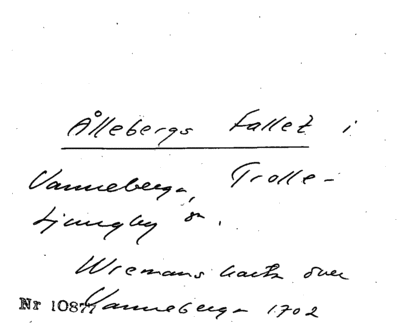 Ållebergs fallet i
Vanneberga, Trolle-
Ljungby sn.
Wiemans karta över
Nr 10877 Vanneberga 1702